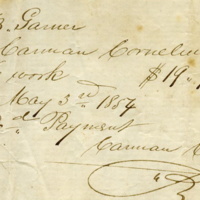 B. Garner
Carman Cornelius
work $19.
May 3rd 1854
Payment
Carman C